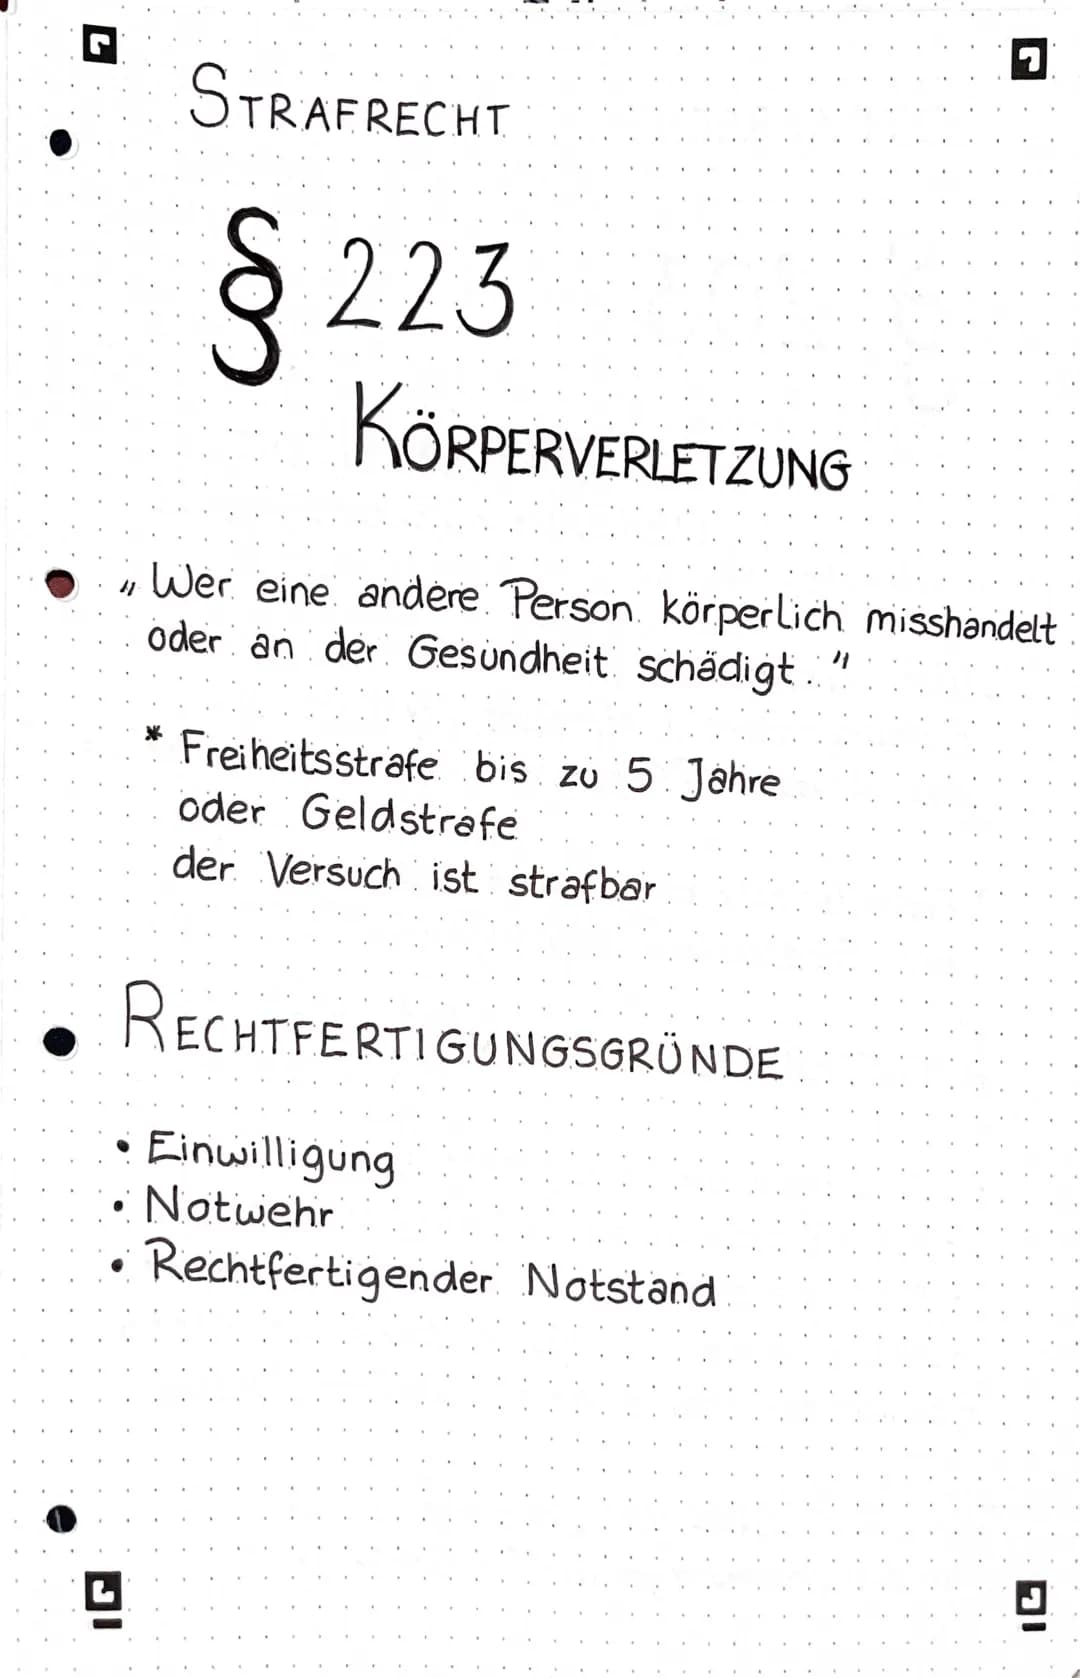 STRAFRECHT
§ 223
KÖRPERVERLETZUNG
„Wer eine andere Person körperlich misshandelt
oder an der Gesundheit schädigt."
* Freiheitsstrafe bis zu 5 Jahre
oder Geldstrafe
der Versuch ist strafbar
RECHTFERTIGUNGSGRÜNDE
• Einwilligung
• Notwehr
• Rechtfertigender Notstand